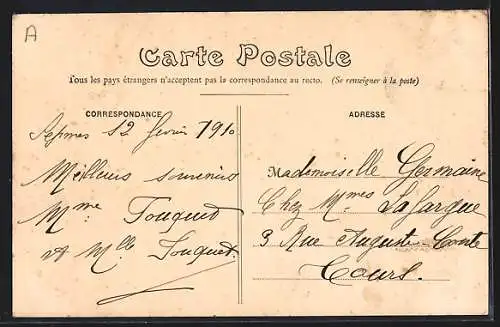 A
Carte Postale
Tous les pays étrangers n'acceptent pas la correspondance au recto. (Se renseigner à la poste)
CORRESPONDANCE
ADRESSE
Sepmes 12 février 1910
Meilleurs souvenirs
Mme Fouquet
et Mlle Fouquet.
Mademoiselle Germaine
Chez Mmes Lafargue
3 Rue Auguste Comte
Tours.